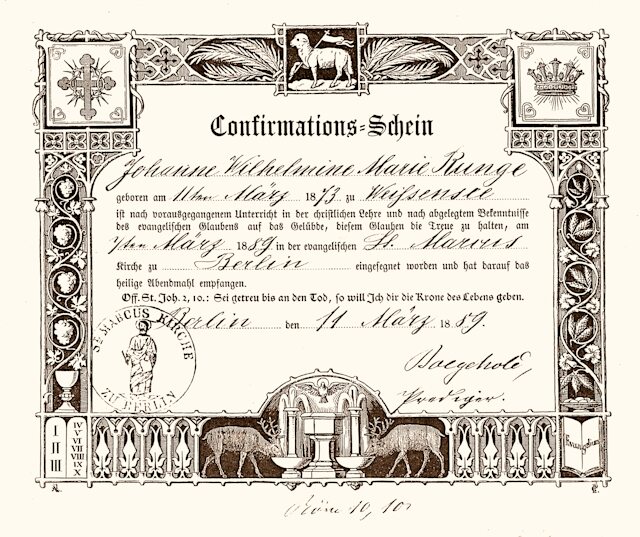 Confirmations-Schein
Johanne Wilhelmine Marie Runge
geboren am 11ten März 1873 zu Weißensee
ist nach vorausgegangenem Unterricht in der christlichen Lehre und nach abgelegtem Bekenntnisse
des evangelischen Glaubens auf das Gelübde, diesem Glauben die Treue zu halten, am
7ten März 1889 in der evangelischen St. Marcus
Kirche zu Berlin eingesegnet worden und hat darauf das
heilige Abendmahl empfangen.
Off. St. Joh. 2, 10.: Sei getreu bis an den Tod, so will Ich dir die Krone des Lebens geben.
Berlin den 11 März 1889.
ST. MARCUS KIRCHE
ZU BERLIN
Boegehold,
Prediger.
I II III
IV V VI VII VIII IX X
Evangelium
Röm 10, 10